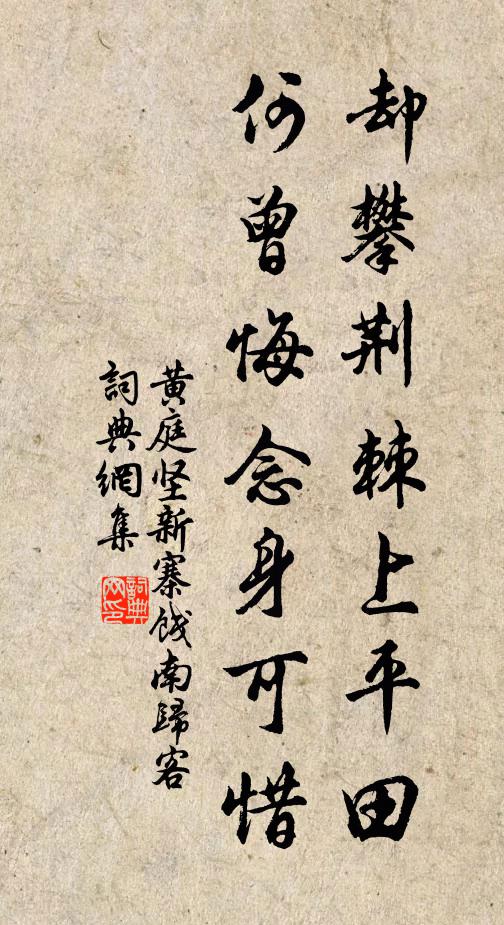 却攀荆棘上平田
何曾悔念身可惜
黄庭坚新寨饯南歸客
詞典網集
詞典网印